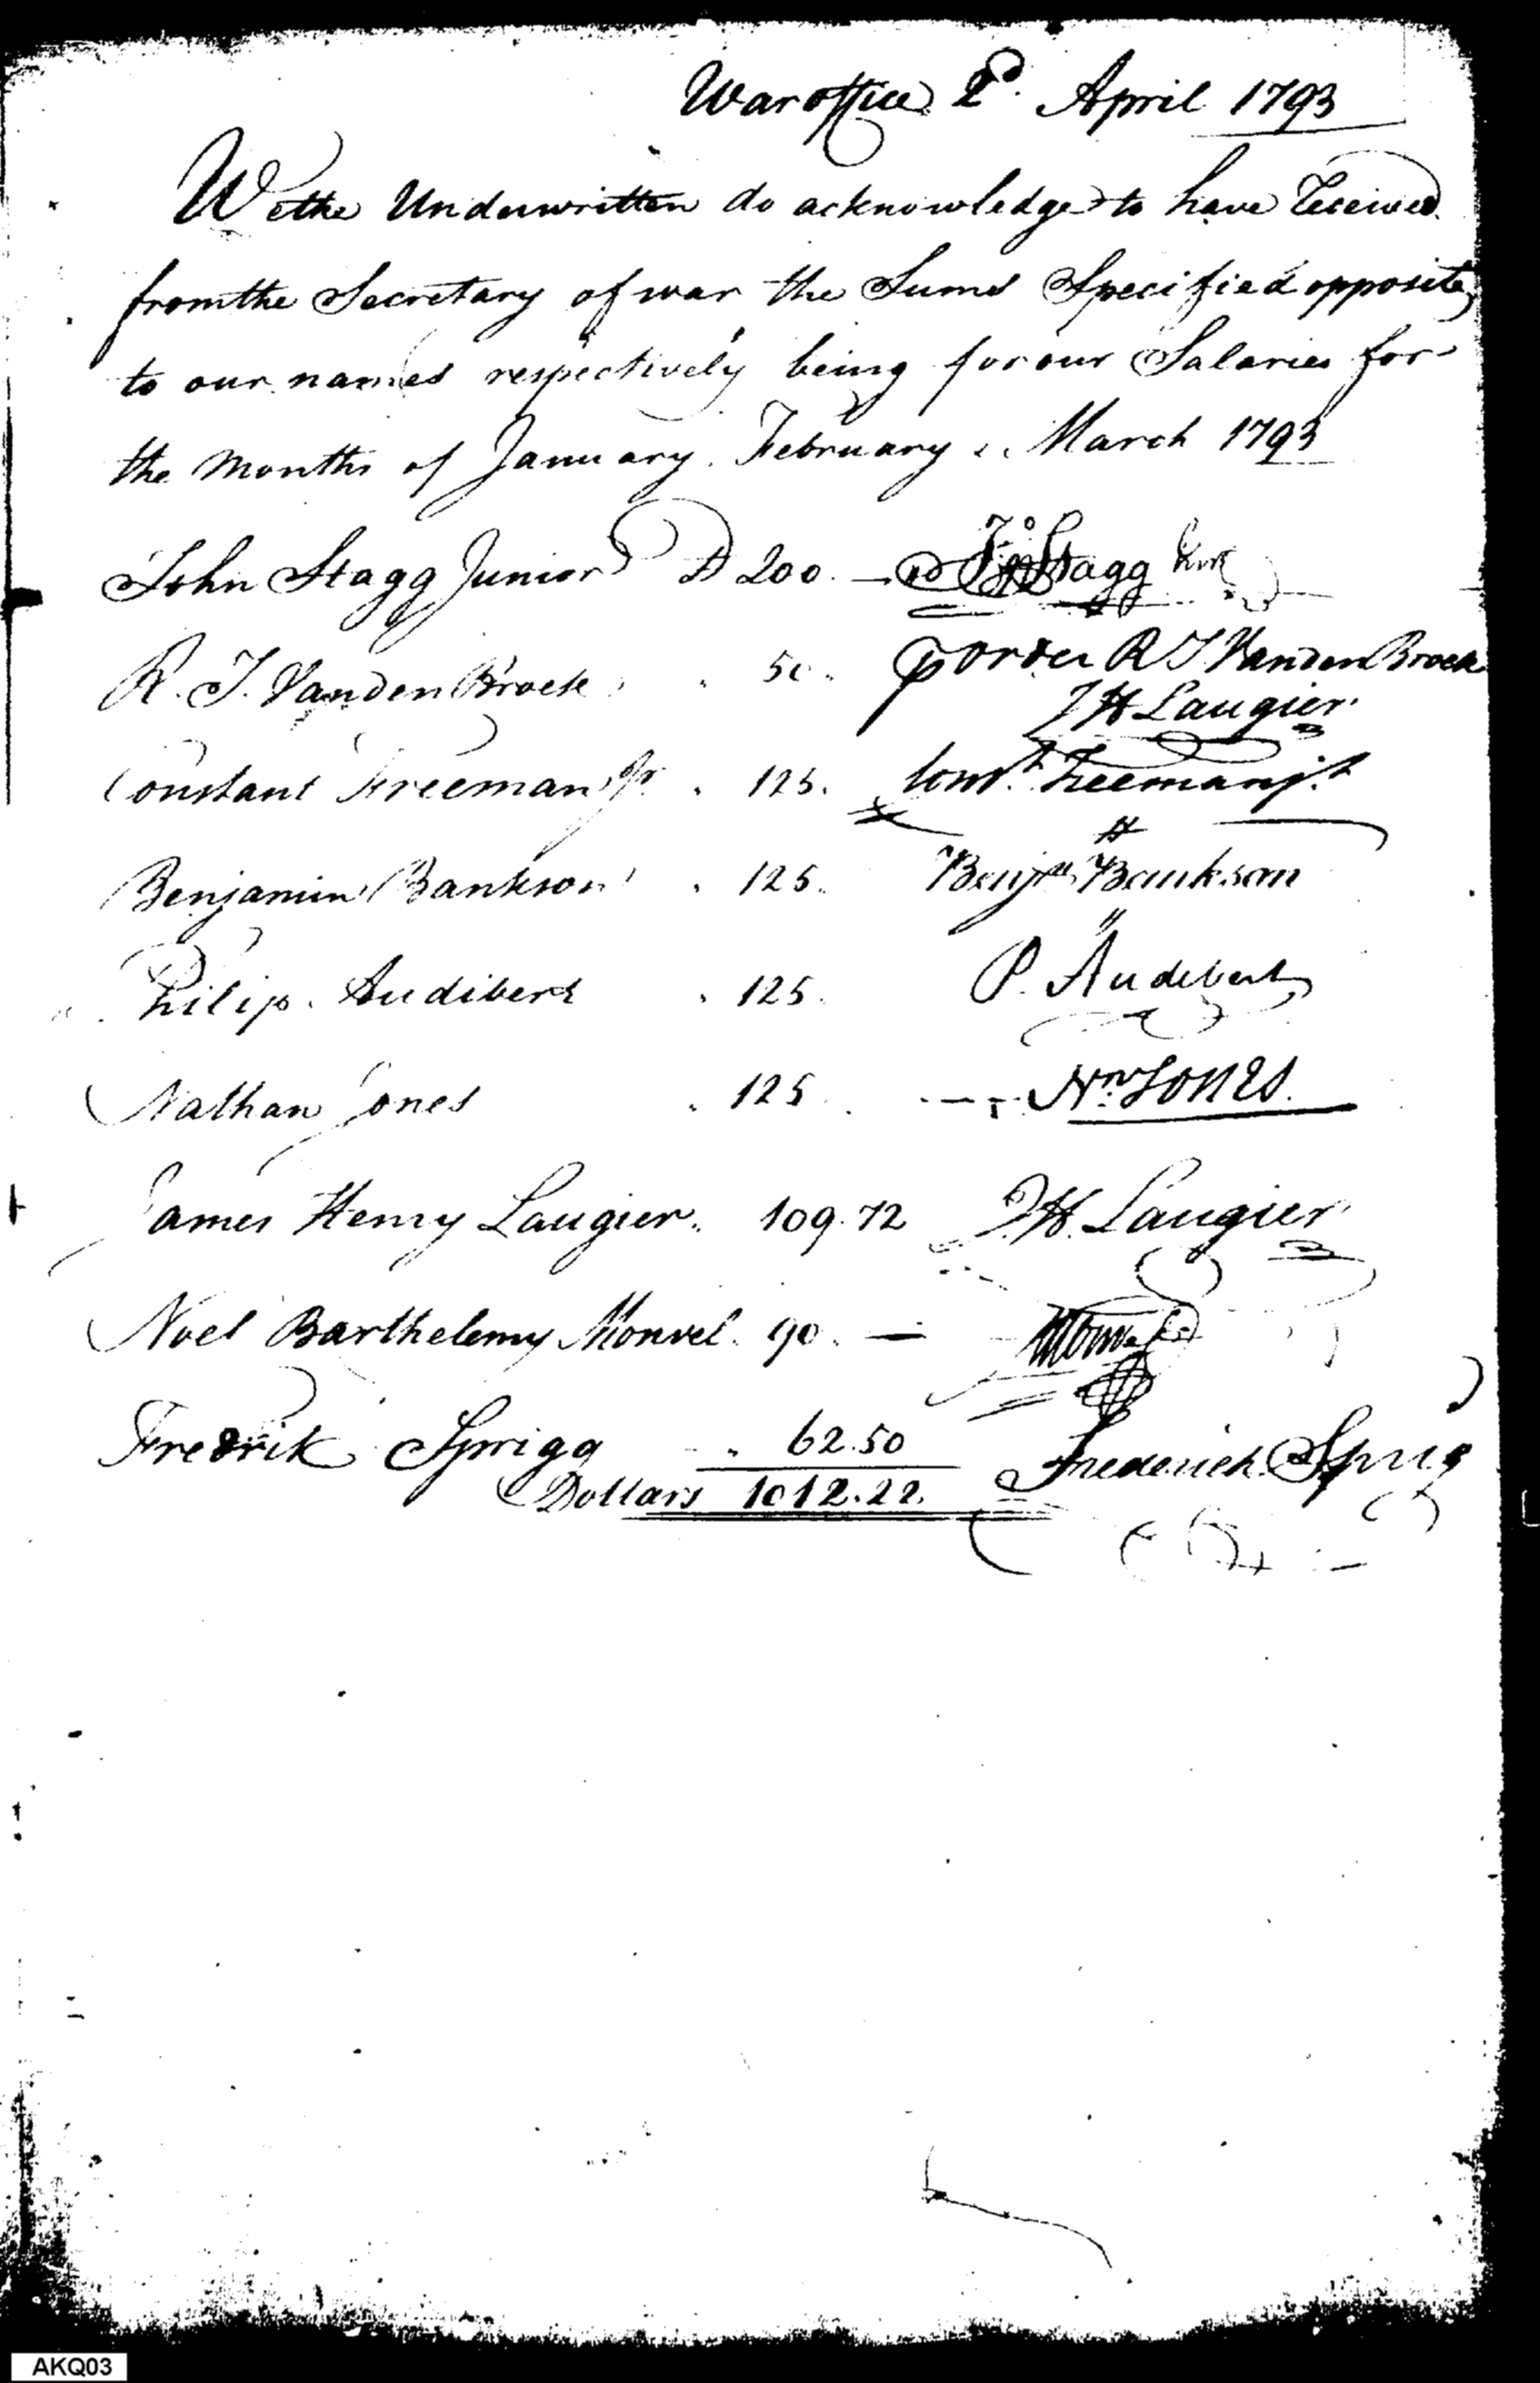 War office 2d. April 1793
We the Underwritten do acknowledge to have Received
from the Secretary of war the Sums Specified opposite
to our names respectively being for our Salaries for
the Months of January, February & March 1793
John Stagg Junior D 200. — Jno Stagg Junr
R. J. Vanden Broek . 50. p order R J Vanden Broek
J H Laugier
Constant Freeman Jr. . 125. Const. Freeman jr
Benjamin Bankson . 125. Benjn Bankson
Philip Audibert . 125. P. Audebert
Nathan Jones . 125 Nn. Jones.
James Henry Laugier. 109.72 J.H. Laugier
Noel Barthelemy Monvel. 90. —
Fredrik Sprigg . 62.50 Frederick Sprig
Dollars 1012.22.
AKQ03